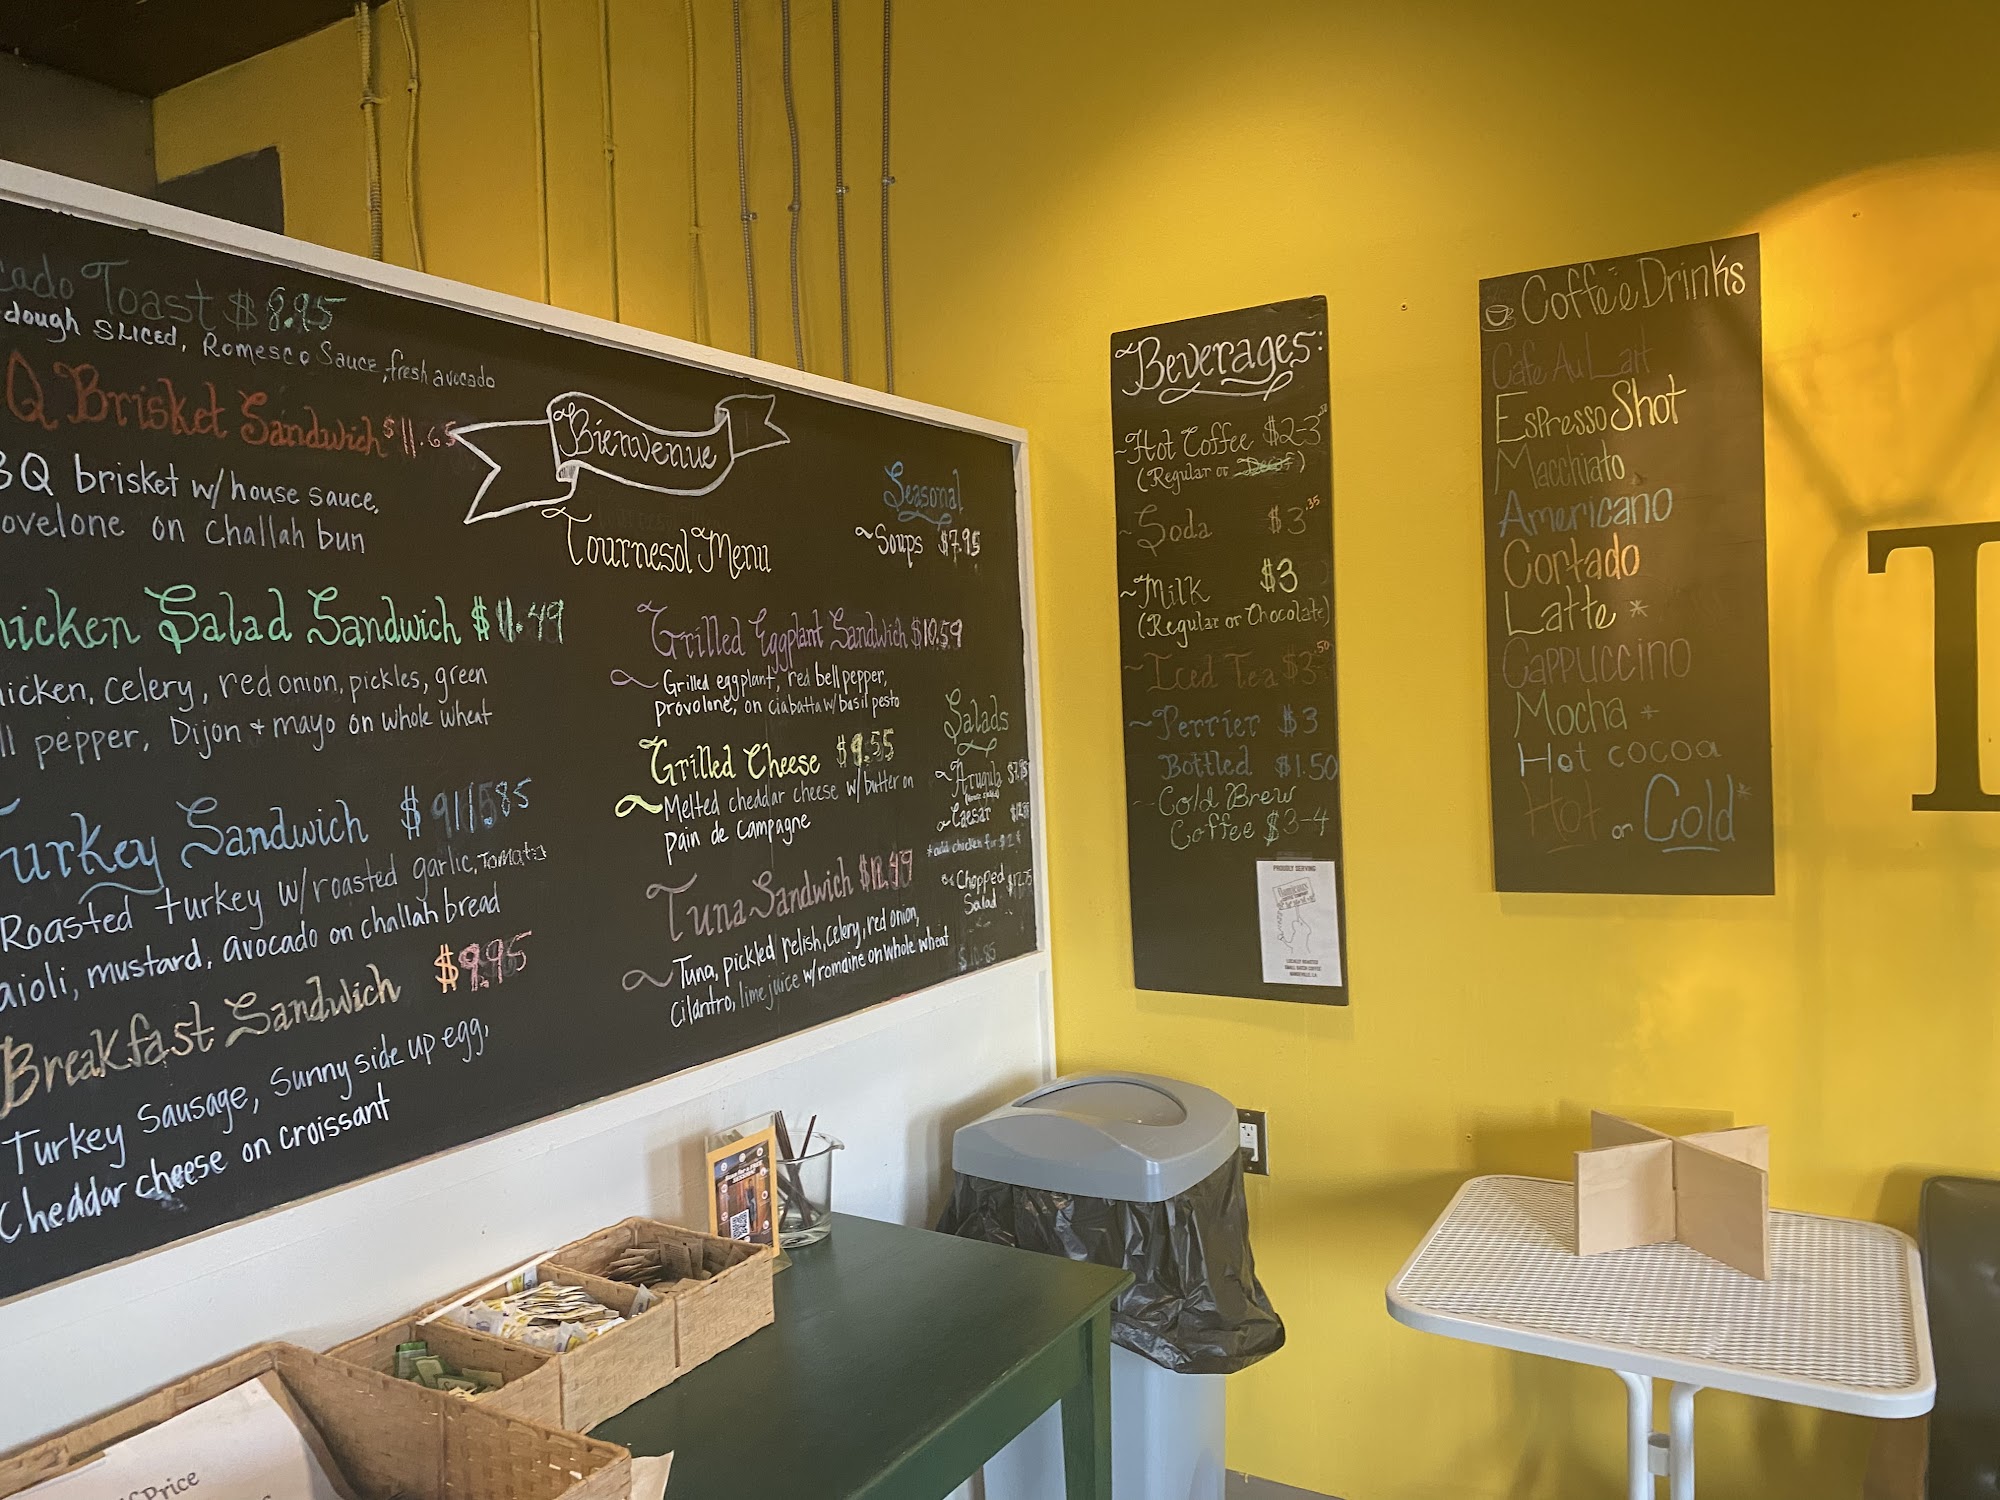 cado Toast $8.95
dough sliced, Romesco Sauce, fresh avocado
Q Brisket Sandwich $11.65
BQ brisket w/ house sauce,
ovelone on challah bun
hicken Salad Sandwich $11.49
hicken, celery, red onion, pickles, green
ll pepper, Dijon + mayo on whole wheat
Turkey Sandwich
Roasted turkey w/ roasted garlic, Tomato
aioli, mustard, avocado on challah bread
Breakfast Sandwich $9.95
Turkey Sausage, Sunny side up egg,
Cheddar cheese on croissant
Bienvenue
Tournesol Menu
Seasonal
~Soups $7.95
Grilled Eggplant Sandwich $10.59
Grilled eggplant, red bell pepper,
provolone, on ciabatta w/ basil pesto
Grilled Cheese $9.55
Melted cheddar cheese w/ butter on
pain de campagne
Tuna Sandwich
Tuna, pickled relish, celery, red onion,
cilantro, lime juice w/ romaine on whole wheat
Salads
~Arugula
~Caesar
*add chicken for $2*
Chopped
Salad
$10.85
~Beverages:
~Hot Coffee $2-3
(Regular or Decaf)
~Soda $3.35
~Milk $3
(Regular or Chocolate)
~Iced Tea $3.50
~Perrier $3
Bottled $1.50
~Cold Brew
Coffee $3-4
PROUDLY SERVING
LOCALLY ROASTED
SMALL BATCH COFFEE
MANDEVILLE, LA
Coffee Drinks
Cafe Au Lait
Espresso Shot
Macchiato
Americano
Cortado
Latte *
Cappuccino
Mocha *
Hot cocoa
Hot or Cold*
Price